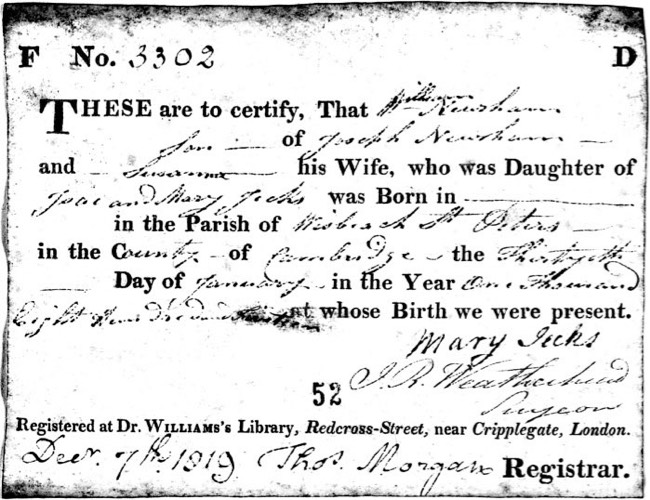 F No. 3302 D
THESE are to certify, That William Newsham
Son of Joseph Newsham
and Susanna his Wife, who was Daughter of
Isaac and Mary Jecks was Born in
in the Parish of Wisbeach St Peters
in the County of Cambridge the Thirtyeth
Day of January in the Year One Thousand
Eight Hundred and at whose Birth we were present.
Mary Jecks
J. R. Weatherhead
Surgeon
52
Registered at Dr. WILLIAMS's Library, Redcross-Street, near Cripplegate, London.
Decr. 7th 1819 Thos. Morgan Registrar.